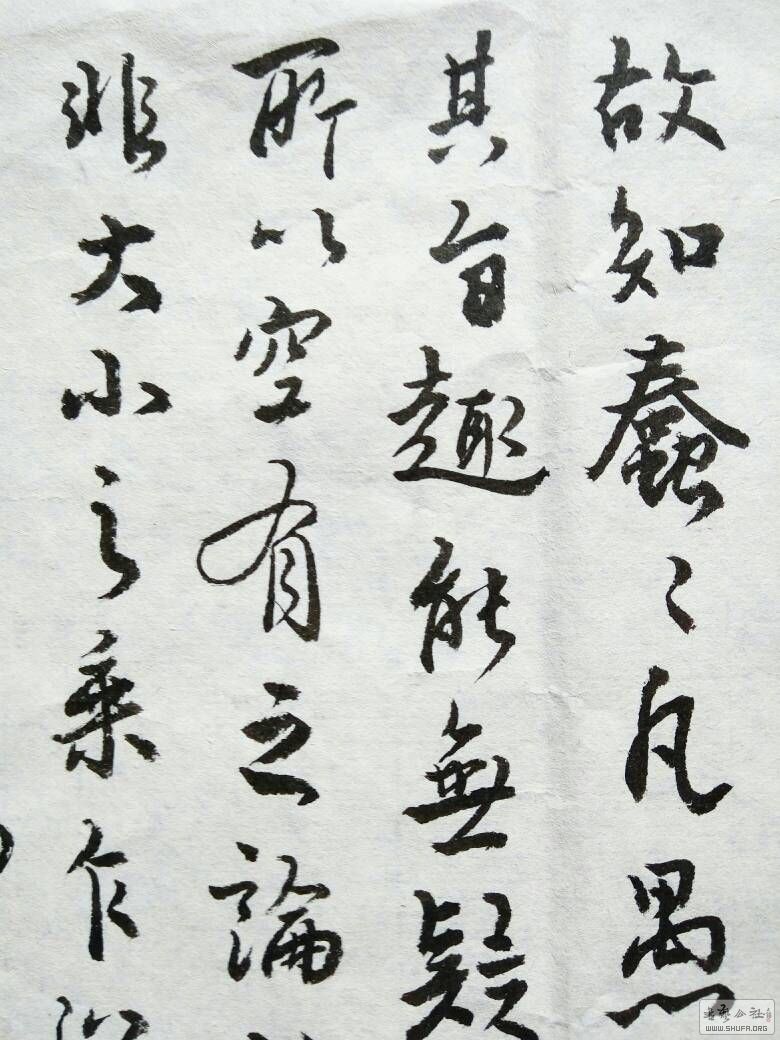 故知蠢〻凡愚
其旨趣能無疑
所以空有之論
非大小之乘乍
书艺公社
WWW.SHUFA.ORG